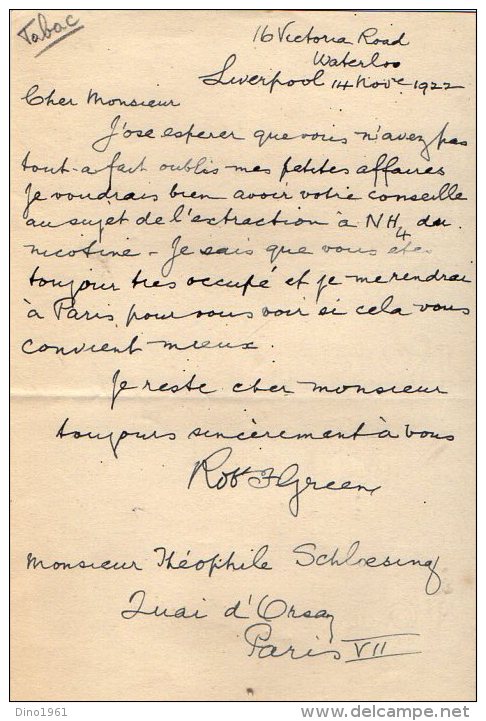 Tabac
16 Victoria Road
Waterloo
Liverpool 14 Nove 1922
Cher Monsieur
J'ose esperer que vous n'avez pas
tout-a fait oublis mes petites affaires
je voudrais bien avoir votre conseille
au sujet de l'extraction à NH4 du
nicotine - Je sais que vous êtes
toujour tres occupé et je me rendrai
à Paris pour vous voir si cela vous
convient mieux.
Je reste cher monsieur
toujours sincèrement à vous
Robt F Green
Monsieur Théophile Schlœsing
Quai d'Orsay
Paris VII
Dino1961
delcampe.net